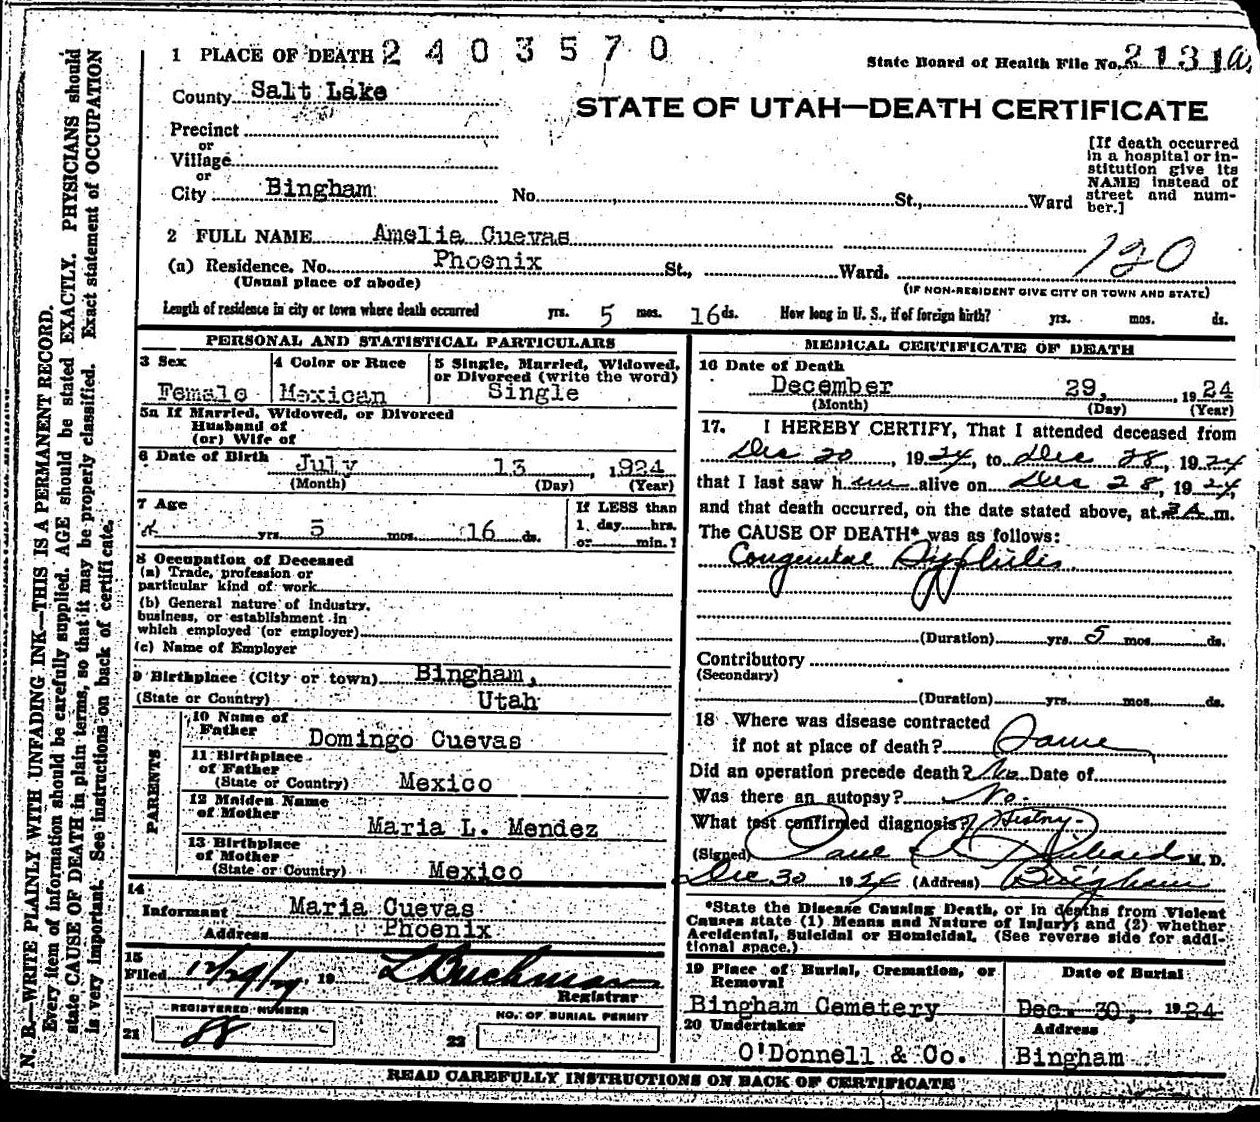 1 PLACE OF DEATH 2 4 0 3 5 7 0
State Board of Health File No. 2131
County Salt Lake
STATE OF UTAH—DEATH CERTIFICATE
Precinct
or
Village
or
City Bingham No. St., Ward
[If death occurred
in a hospital or in-
stitution give its
NAME instead of
street and num-
ber.]
2 FULL NAME Amelia Cuevas
120
(a) Residence. No. Phoenix St., Ward.
(Usual place of abode)
(IF NON-RESIDENT GIVE CITY OR TOWN AND STATE)
Length of residence in city or town where death occurred yrs. 5 mos. 16 ds. How long in U. S., if of foreign birth? yrs. mos. ds.
PERSONAL AND STATISTICAL PARTICULARS
3 Sex
Female
4 Color or Race
Mexican
5 Single, Married, Widowed,
or Divorced (write the word)
Single
5a If Married, Widowed, or Divorced
Husband of
(or) Wife of
6 Date of Birth July 13, 1924
(Month) (Day) (Year)
7 Age
yrs. 5 mos. 16 ds.
If LESS than
1 day hrs.
or min.?
8 Occupation of Deceased
(a) Trade, profession or
particular kind of work
(b) General nature of industry,
business, or establishment in
which employed (or employer)
(c) Name of Employer
9 Birthplace (City or town) Bingham,
(State or Country) Utah
PARENTS
10 Name of
Father Domingo Cuevas
11 Birthplace
of Father
(State or Country) Mexico
12 Maiden Name
of Mother
Maria L. Mendez
13 Birthplace
of Mother
(State or Country) Mexico
14
Informant Maria Cuevas
Address Phoenix
15
Filed 12/29/24 19 L Buchman
Registrar
REGISTERED NUMBER
21 88
NO. OF BURIAL PERMIT
22
MEDICAL CERTIFICATE OF DEATH
16 Date of Death
December 29, 1924
(Month) (Day) (Year)
17. I HEREBY CERTIFY, That I attended deceased from
Dec 20, 1924, to Dec 28, 1924
that I last saw h alive on Dec 28, 1924,
and that death occurred, on the date stated above, at 3 A m.
The CAUSE OF DEATH* was as follows:
Congenital Syphilis
(Duration) yrs. 5 mos. ds.
Contributory
(Secondary)
(Duration) yrs. mos. ds.
18 Where was disease contracted
if not at place of death? Same
Did an operation precede death? No Date of
Was there an autopsy? No.
What test confirmed diagnosis? History.
(Signed) Paul S Richards M. D.
Dec 30 1924 (Address) Bingham
*State the Disease Causing Death, or in deaths from Violent
Causes state (1) Means and Nature of Injury; and (2) whether
Accidental, Suicidal or Homicidal. (See reverse side for addi-
tional space.)
19 Place of Burial, Cremation, or
Removal
Bingham Cemetery
Date of Burial
Dec. 30, 1924
20 Undertaker
O'Donnell & Co.
Address
Bingham
READ CAREFULLY INSTRUCTIONS ON BACK OF CERTIFICATE
N. B.—WRITE PLAINLY WITH UNFADING INK—THIS IS A PERMANENT RECORD.
Every item of information should be carefully supplied. AGE should be stated EXACTLY. PHYSICIANS should
state CAUSE OF DEATH in plain terms, so that it may be properly classified. Exact statement of OCCUPATION
is very important. See instructions on back of certificate.